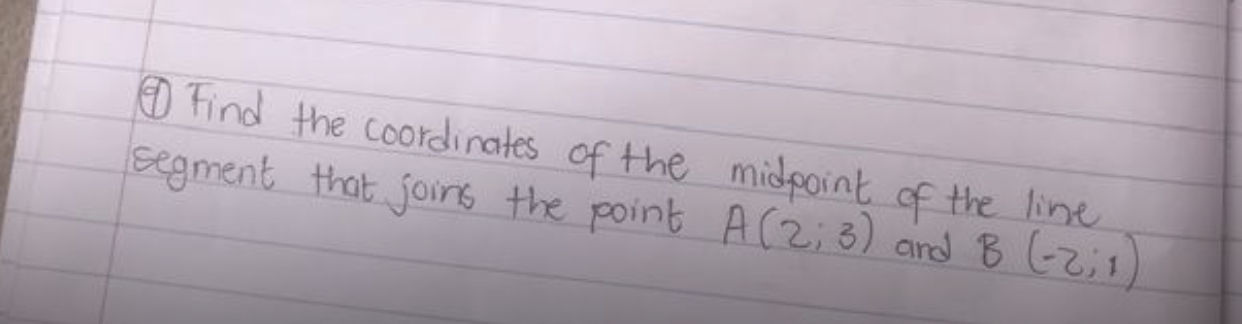 ④ Find the coordinates of the midpoint of the line
segment that joins the point A(2;3) and B (-2;1)